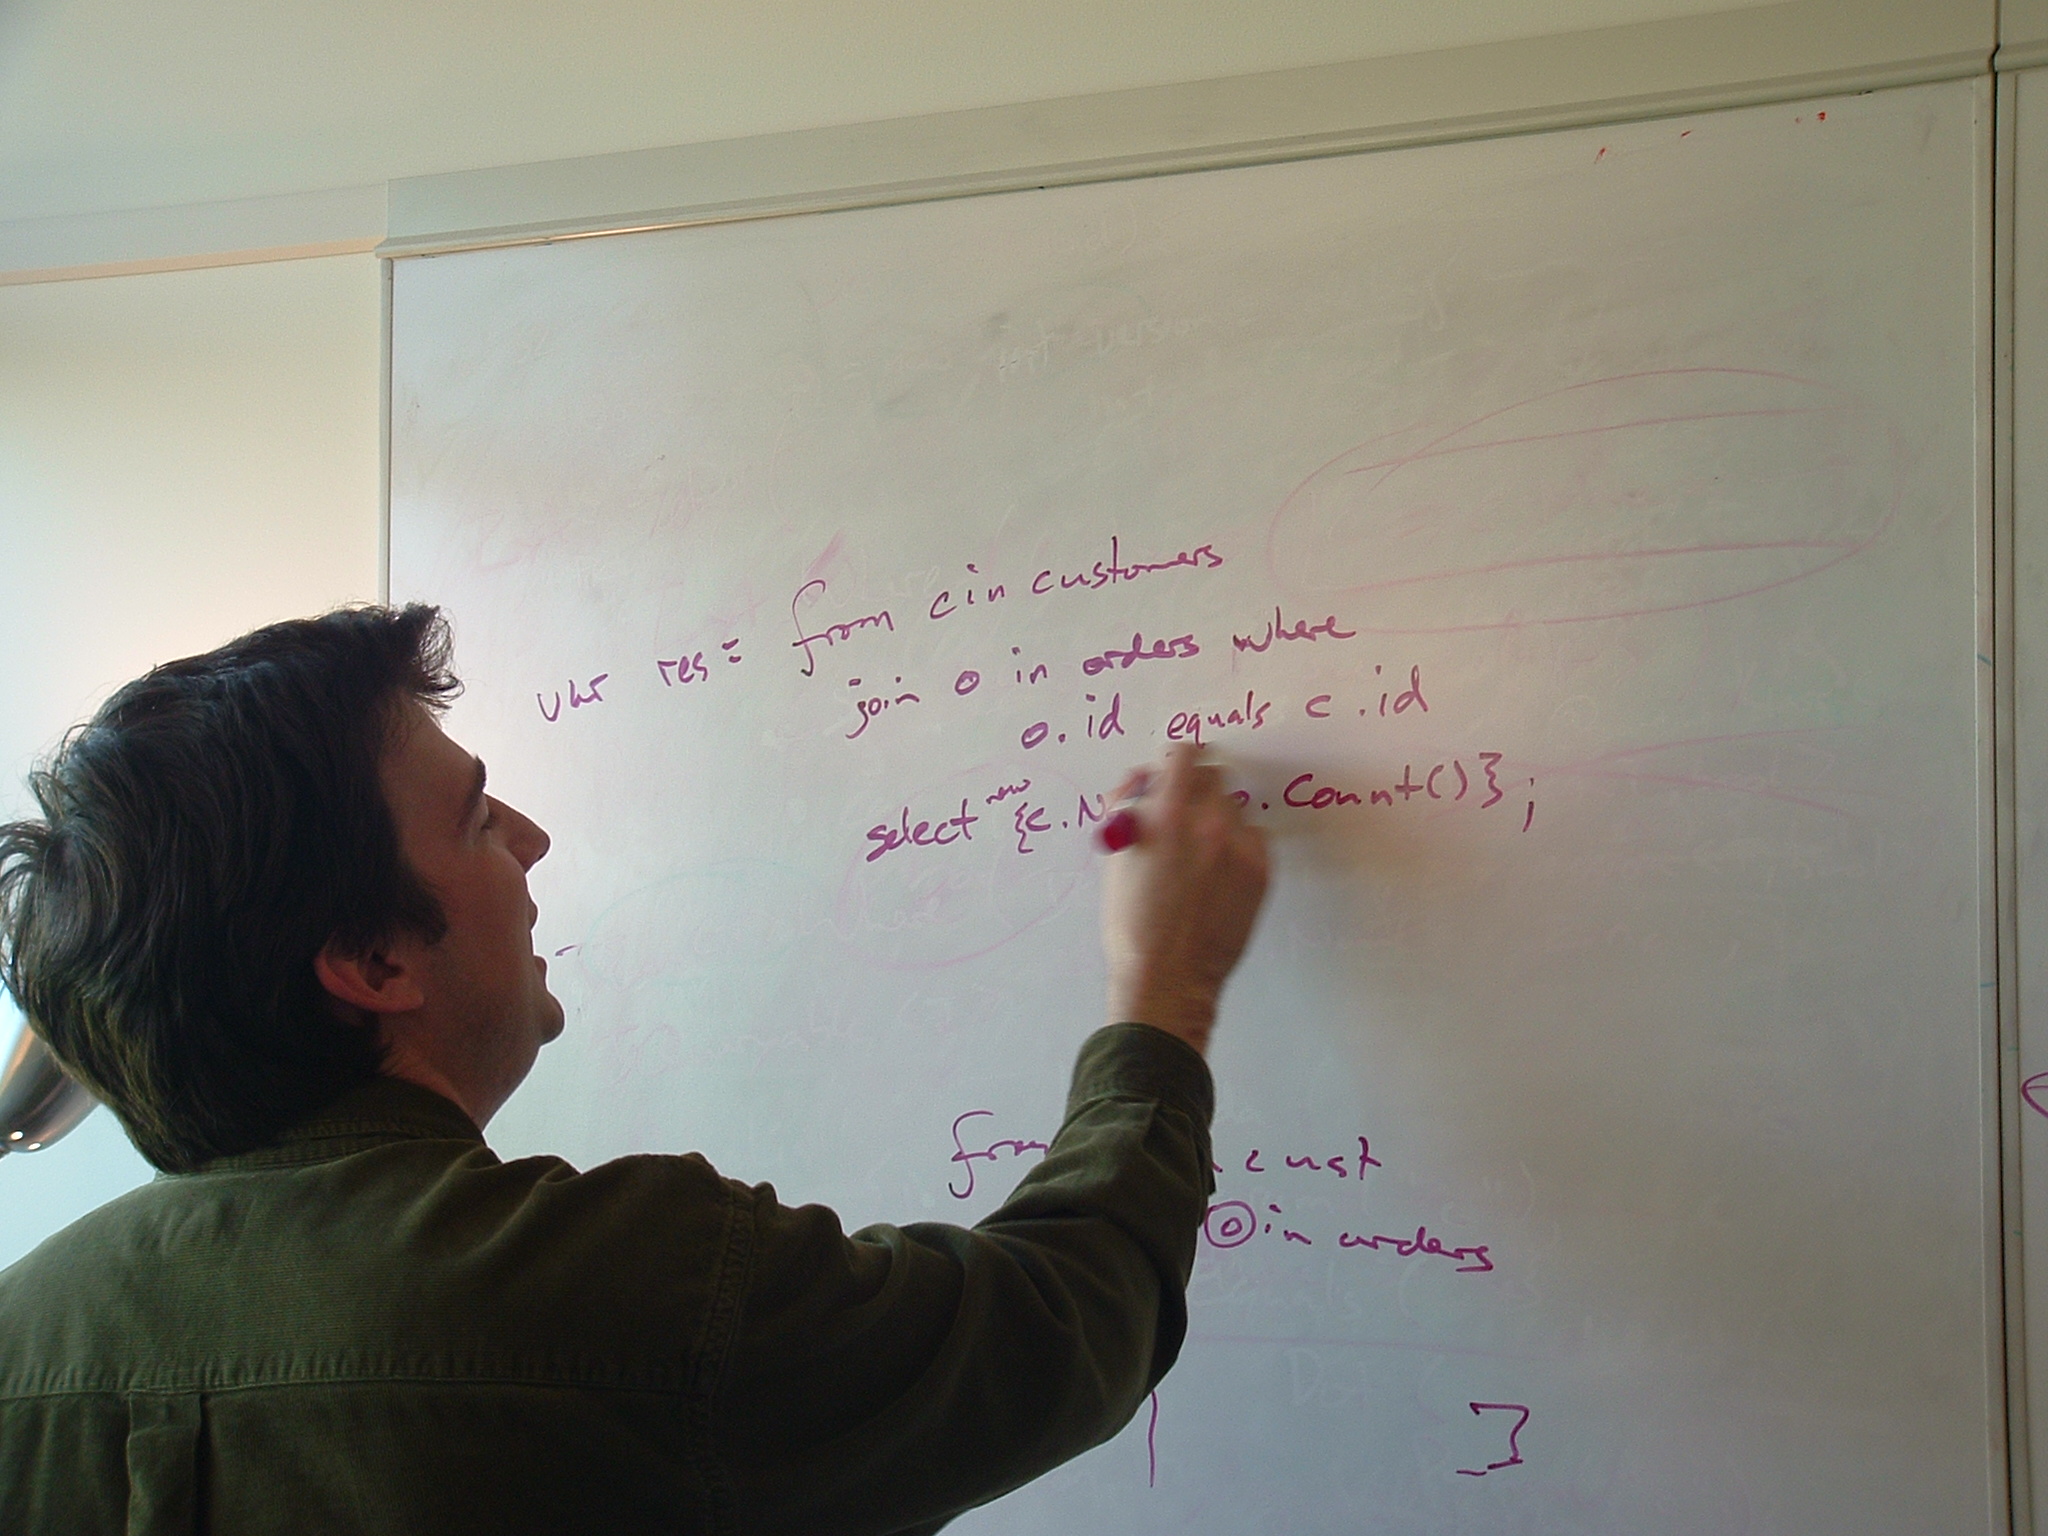 var res = from c in customers
join o in orders where
o.id equals c.id
select new {c.N o.Count()};
from cust
o in orders
]